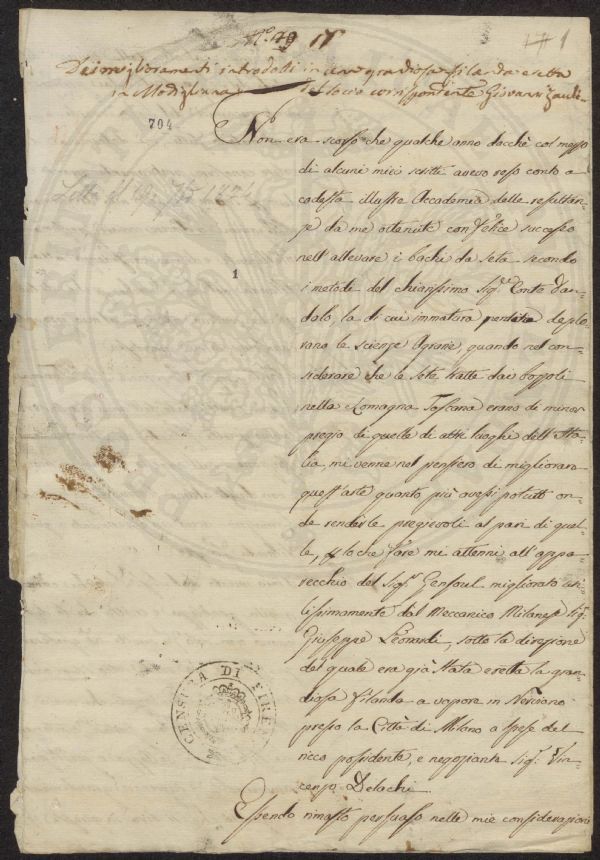 N.° 40 15
1
Dei miglioramenti introdotti in una grandiosa filanda eretta
in Modigliana del socio corrispondente Giovanni Zauli
704
Non era scorso che qualche anno dacchè col mezzo
di alcuni miei scritti avevo reso conto a
codesta illustre Accademia delle resultan-
ze da me ottenute con felice successo
nell'allevare i bachi da seta secondo
i metodi del chiarissimo Sig.r Conte Dan-
dolo, la di cui immatura perdita deplo-
rano le scienze Agrarie, quando nel con-
siderare che le sete tratte dai bozzoli
nella Romagna Toscana erano di minor
pregio di quelle di altri luoghi dell'Ita-
lia, mi venne nel pensiero di migliorare
quest'arte quanto più avessi potuto on-
de renderle pregievoli al pari di quel-
le, lo che fare mi attenni all'appa-
recchio del Sig.r Gensoul migliorato uti-
lissimamente dal Meccanico Milanese Sig.r
Giuseppe Leonardi, sotto la direzione
del quale era già stata eretta la gran-
diosa filanda a vapore in Nerviano
presso la Città di Milano a spese del
ricco possidente, e negoziante Sig.r Vin-
cenzo Delachi.
Essendo rimasto persuaso nelle mie considerazioni
Letta
1
CENSURA DI FIRE